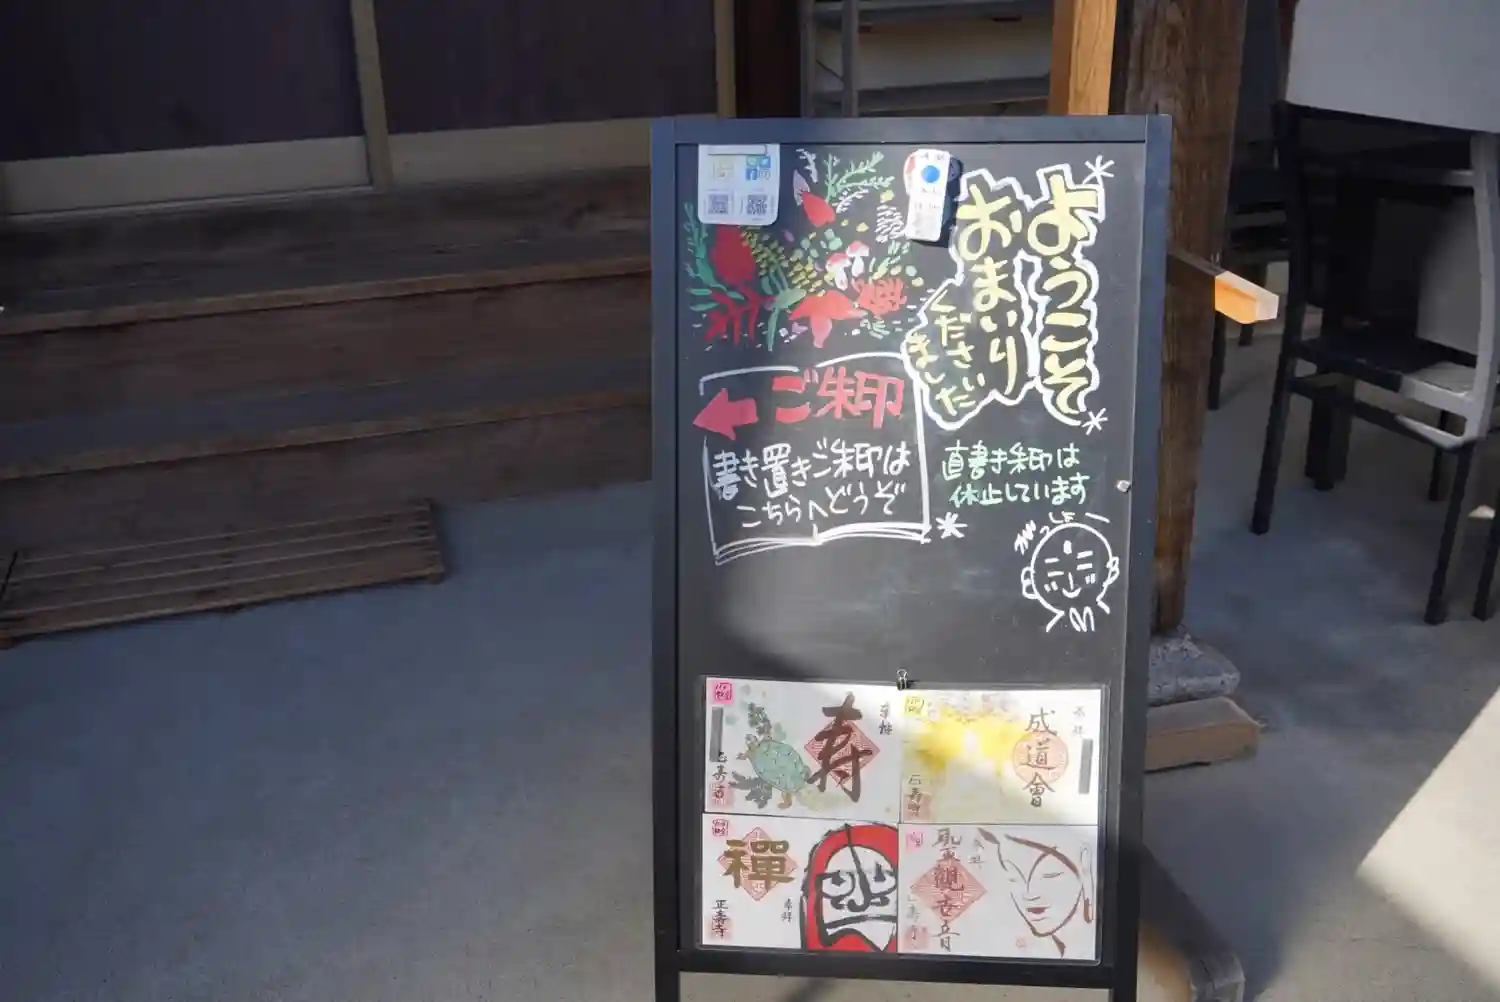 ようこそ
おまいり
くださいました
ご朱印
書き置きご朱印は
こちらへどうぞ
直書き朱印は
休止しています
奉拝
寿
正寿寺
奉拝
成道會
正寿寺
奉拝
禪
正壽寺
奉拝
聖観世音